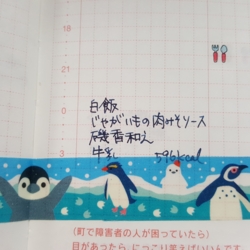 18
白飯
じゃがいもの肉みそソース
磯香和え
牛乳 596kcal
3
0
(町で障害者の人が困っていたら)
目があったら、にっこり笑えばいいんです